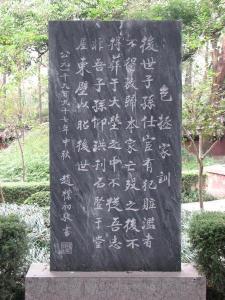 包拯家訓
後世子孫仕宦有犯贓濫者
不得放歸本家亡歿之後不
得葬于大塋之中不從吾志
非吾子孫仰珙刊石豎于堂
屋東壁以昭後世
年中秋 趙樸初敬書